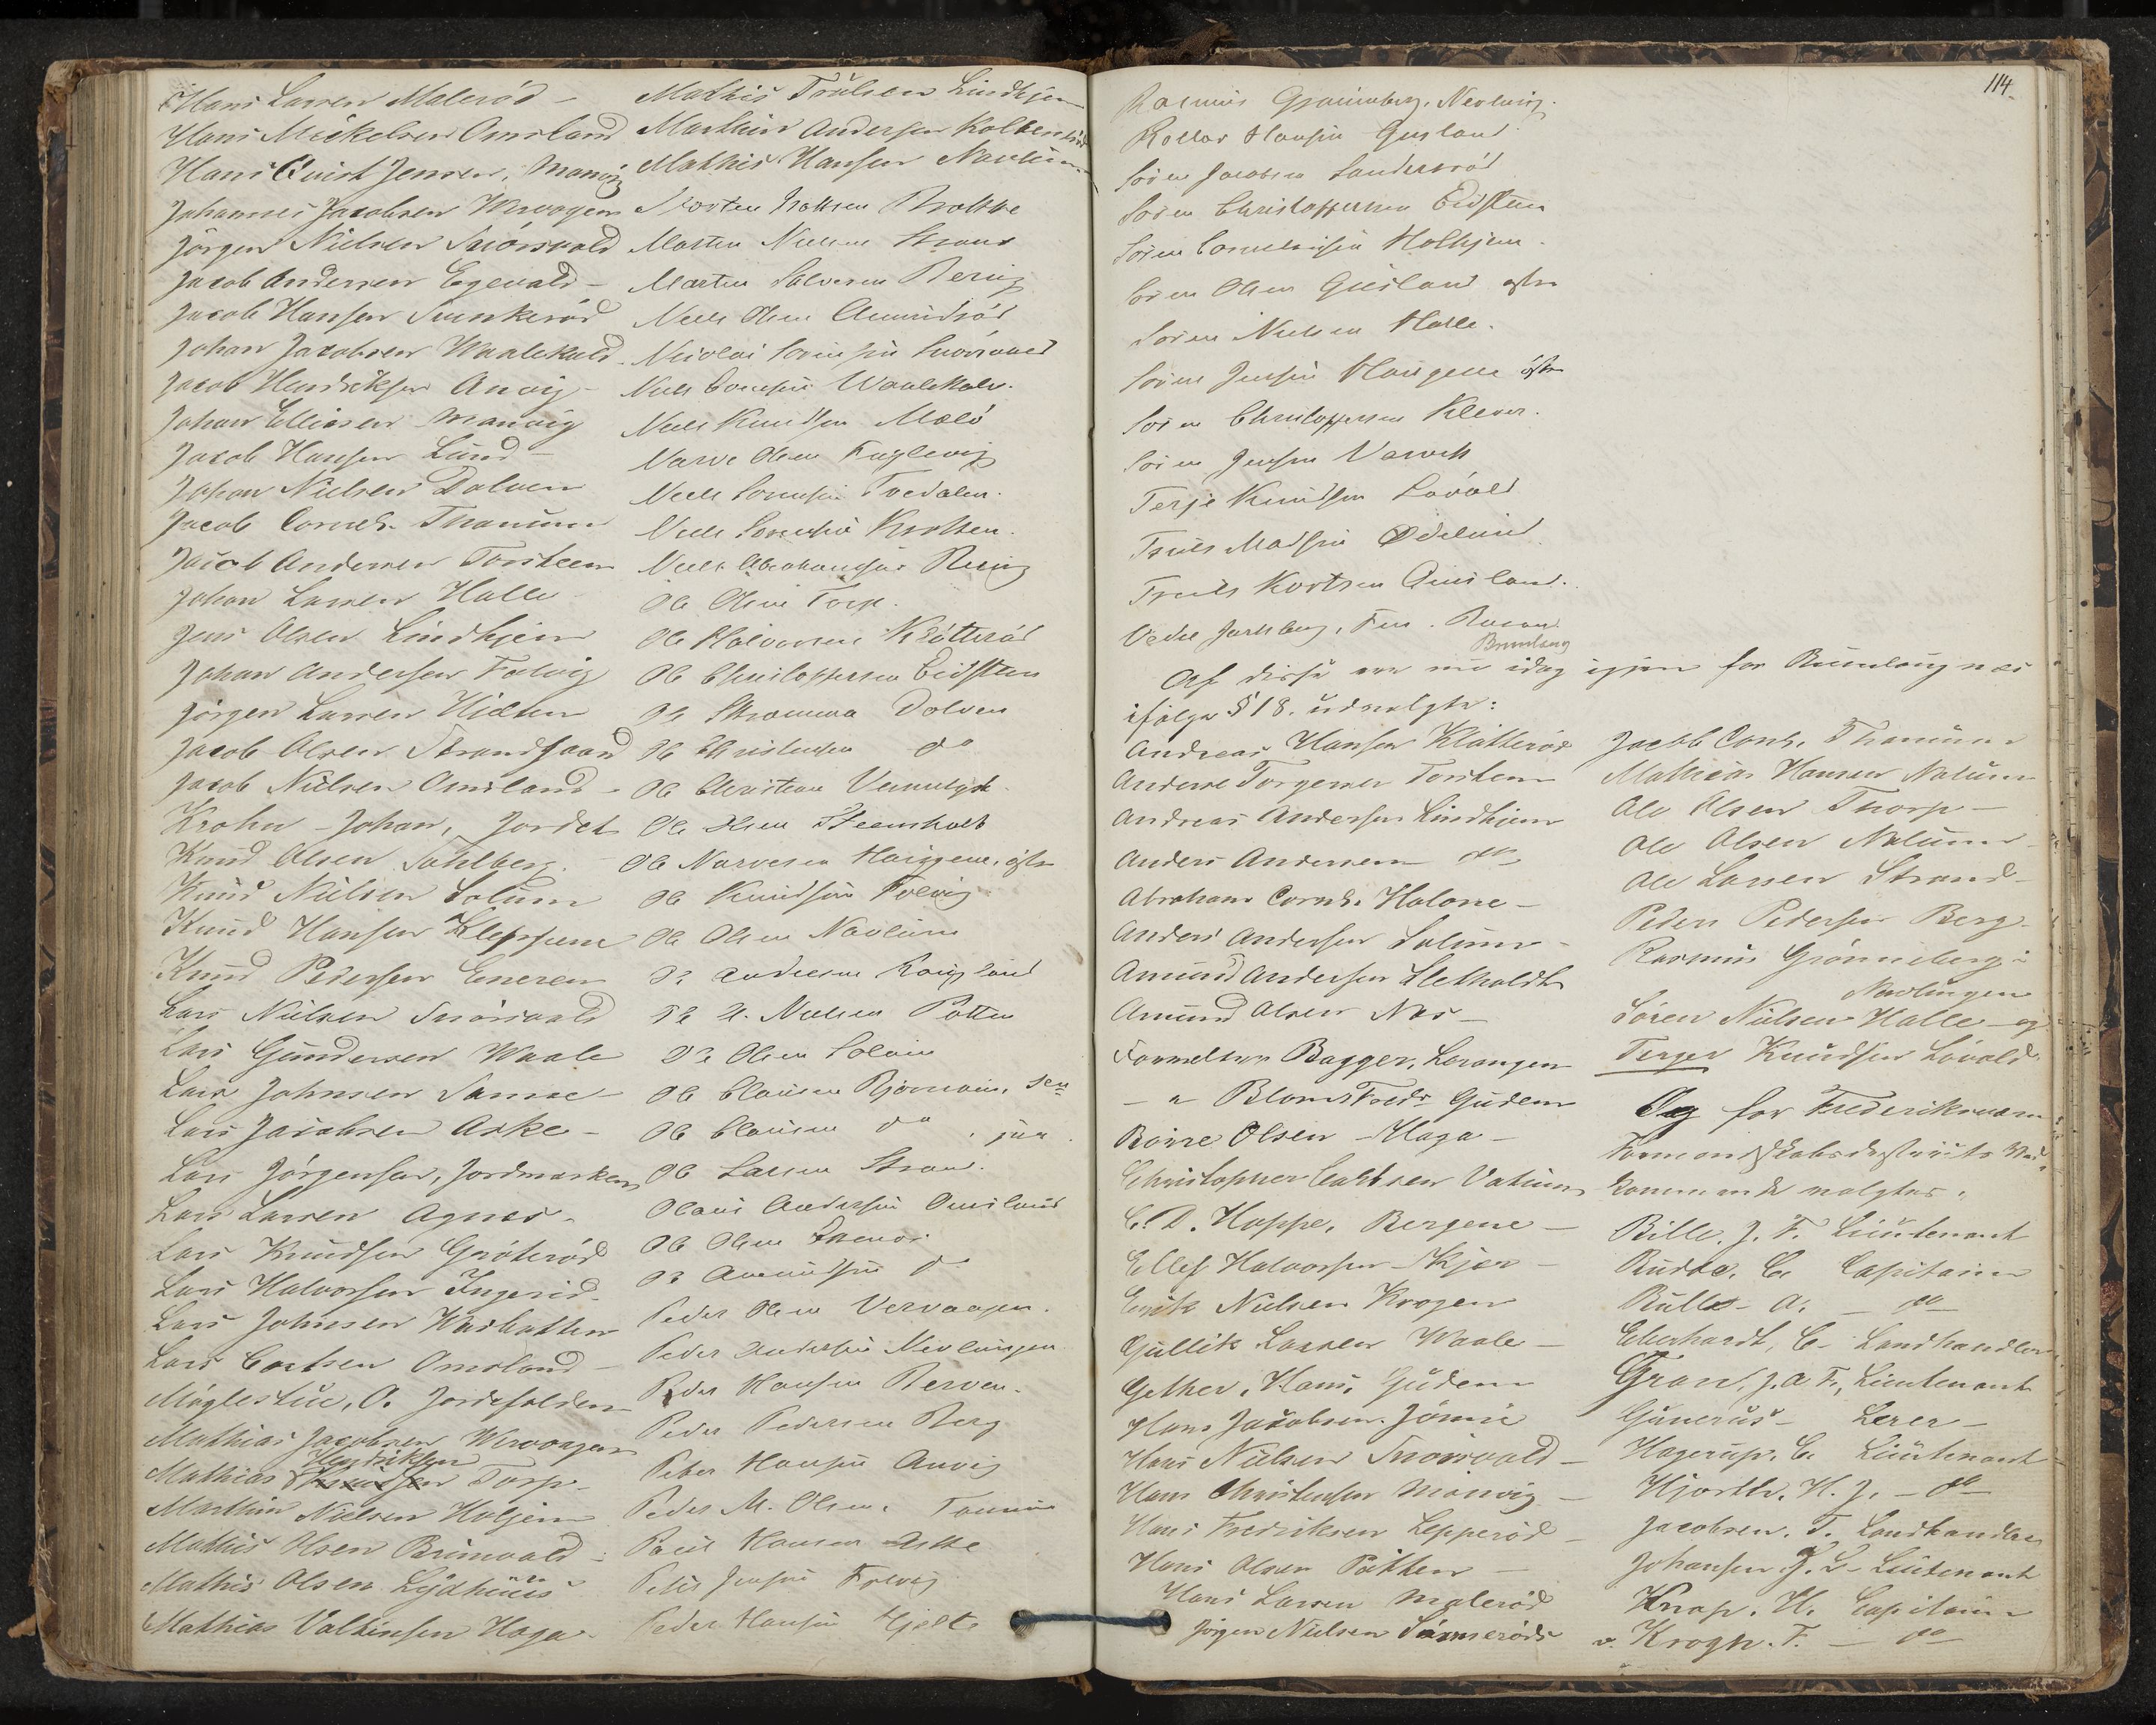 Hans Larsen Malerød -
Hans Mickelsen Omsland
Hans Qvist Jensen, Manvig
Johannes Jacobsen Wervagen
Jörgen Nielsen Snörsvald
Jacob Andersen Egevald -
Jacob Hansen Skinkeröd
Johan Jacobsen Waaleskald
Jacob Hendriksen Anvig -
Johan Elliasen Manvig
Jacob Hansen Lund -
Johan Nielsen Dolven
Jacob Cornels. Thanum
Jacob Andersen Torsteen
Johan Larsen Halle
Jens Olsen Lindhjem
Johan Andersen Folvig
Jörgen Larsen Hielten
Jacob Olsen Strandgaard
Jacob Nielsen Omsland -
Krohn - Johan, Jordet
Knud Olsen Sahlberg
Knud Nielsen Solum
Knud Hansen Kleppene
Knud Pedersen Eneren
Lars Nielsen Snörsvald
Lars Gundersen Waale
Lars Johnsen Sanne -
Lars Jacobsen Aske -
Lars Jörgensen, Jordmarken
Lars Larsen Agnes -
Lars Knudsen Gröteröd
Lars Halvorsen Ingerid.
Lars Johnsen Wasbotten
Lars Cortsen Omsland -
Möglestue, O. Jordefalden
Mathias Jacobsen Wervagen
Hendriksen
Mathias Torp -
Marthin Nielsen Holjem
Mathis Olsen Brunvald -
Mathis Olsen Lydhuus
Mathias Valkinsen Haga -
Mathis Trulsen Lindhjem
Marthin Andersen Kolkenröd
Mathis Hansen Navlum
Morten Brokke
Morten Nielsen Strand
Morten Halvorsen Bervig
Niels Olsen Amundröd
Nicolai Sörensen Snörsvald
Niels Sörensen Waaleskald.
Niels Knudsen Malö
Narve Olsen Fuglevig
Niels Sörensen Tvedalen.
Niels Sörensen Krokken.
Niels Abrahamsen Rævig
Ole Olsen Torp.
Ole Halvorsen Klötteröd
Ole Christophersen Eidsten
Ole Thomma Dolven
Ole Christensen do
Ole Christian Vemmelyst.
Ole Olsen Steensholt
Ole Narvesen Haugene, östre
Ole Knudsen Folvig
Ole Olsen Navlum
Ole Andersen Langsland
Ole N. Nielsen Potten
Ole Olsen Solum
Ole Clausen Bjørnnæs, sen
Ole Clausen do, jun.
Ole Larsen Strand.
Olaus Andersen Omsland
Ole Olsen
Ole Amundsen do
Peder Olsen Vervaagen.
Peder Andersen Nevlungen
Peder Hansen Berven.
Peder Pedersen Berg
Peter Hansen Anvig
Peder M. Olsen. Tanum
Poul Hansen Aske
Peter Jensen Folvig
Peder Hansen Hjelte
114.
Rasmus Grönneberg, Nevlung.
Rollar Hansen Gusland
Sören Jacobsen Sandersröd
Sören Christoffersen Eidsten
Sören Corneliussen Holhjem.
Sören Olsen Guisland östre
Sören Nielsen Halle.
Sören Jensen Haugene östre
Sören Christoffersen Klever.
Sören Jensen Varvik
Terje Knudsen Lövald
Truls Madsen Ødelund
Truls Kortsen Omsland.
Vedel Jarlsberg, Ferd.
Brunlang
Af disse ere nu idag igjen for Brunlangnæs
ifølge § 18. udvalgte:
Andreas Hansen Klötteröd
Anders Torgersen Torsteen
Andreas Andersen Lindhjem
Anders Andersen do
Abraham Cornels. Halone -
Anders Andersen Solum -
Amund Andersen Sletholdt
Amund Olsen Nes -
Cornelius Bagger, Larangen
- " Blom Fredr. Gudem
Börre Olsen - Haga -
Christopher Carlsen Vatum
C. D. Hoppe, Bergene -
Ellef Halvorsen Skjær -
Engelh Nielsen Krogen
Gullik Larsen Waale -
Gether, Hans, Gudem
Hans Jacobsen Jönne
Hans Nielsen Snörsvald -
Hans Christensen Manvig -
Hans Fredriksen Lepperöd -
Hans Olsen Pötten -
Hans Larsen Maleröd
Jörgen Nielsen Sömmeröds
Jacob Corns. Thanum
Mathias Hansen Nalum
Ole Olsen Thorp -
Ole Olsen Nalum -
Ole Larsen Strand -
Peder Pedersen Berg -
Rasmus Grönneberg i
Nevlungen
Sören Nielsen Halle - og
Terger Knudsen Lövald.
Og for Frederiksværn
Formandskabsdistrikts Ved-
kommende valgtes:
Bille, J. F. Lieutenant
Budde, C. Capitain
Bulls - A. - do -
Eberhardt, C. Landhandler
Gran, J. A. F., Lieutenant
Gunerus - Lærer -
Hagerup, C. Lieutenant
Hjorth, H. J. - do -
Jacobsen. T. Landhandler
Johansen J. L. Lieutenant
Knap. H. Capitain
v. Krogh. F. - do -